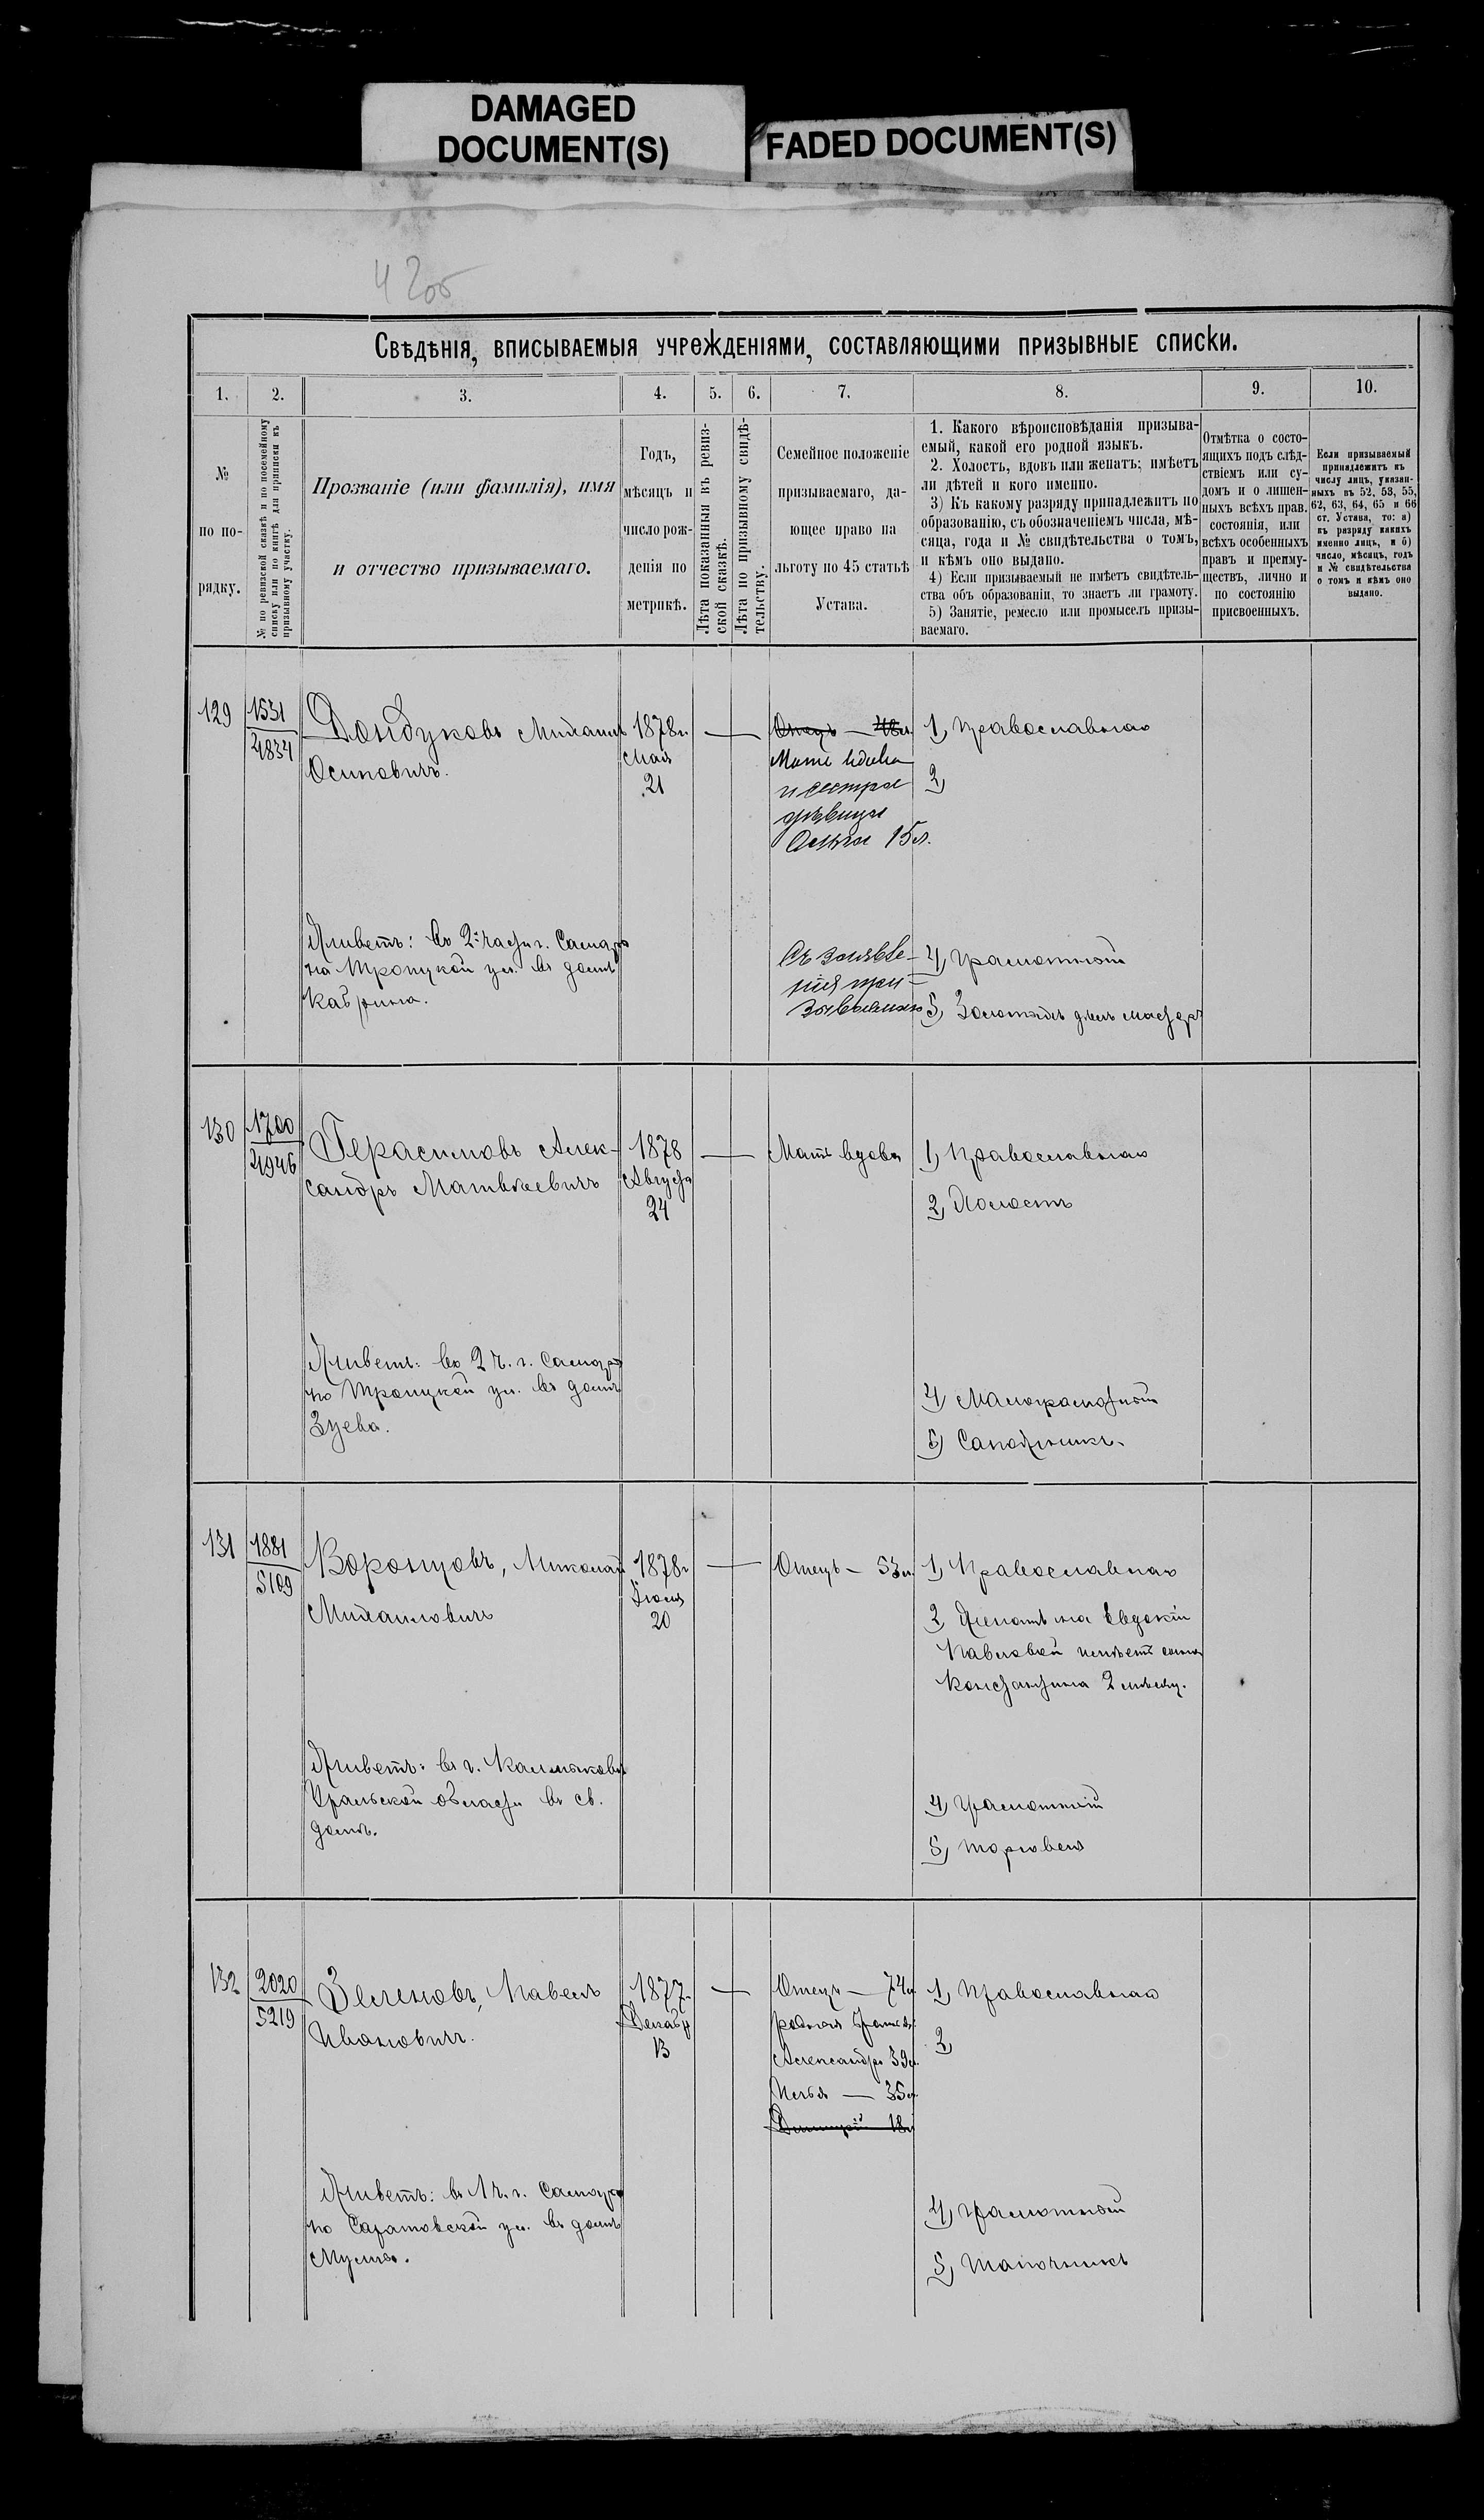 DAMAGED
DOCUMENT(S)
FADED DOCUMENT(S)
4 2об
Свѣдѣнія, вписываемыя учрежденіями, составляющими призывные списки.
1.
2.
3.
4.
5.
6.
7.
8.
9.
10.
№
по по-
рядку.
№ по ревизской сказкѣ и по посемейному
списку или по книгѣ для приписки къ
призывному участку.
Прозваніе (или фамилія), имя
и отчество призываемаго.
Годъ,
мѣсяцъ и
число рож-
денія по
метрикѣ.
Лѣта показанныя къ ревиз-
ской сказкѣ.
Лѣта по призывному свидѣ-
тельству.
Семейное положеніе
призываемаго, да-
ющее право на
льготу по 45 статьѣ
Устава.
1. Какого вѣроисповѣданія призыва-
емый, какой его родной языкъ.
2. Холостъ, вдовъ или женатъ; имѣетъ
ли дѣтей и кого именно.
3) Къ какому разряду принадлежитъ по
образованію, съ обозначеніемъ числа, мѣ-
сяца, года и № свидѣтельства о томъ,
и кѣмъ оно выдано.
4) Если призываемый не имѣетъ свидѣтель-
ства объ образованіи, то знаетъ ли грамоту.
5) Занятіе, ремесло или промыселъ призы-
ваемаго.
Отмѣтка о состо-
ящихъ подъ слѣд-
ствіемъ или су-
домъ и о лишен-
ныхъ всѣхъ прав.
состоянія, или
всѣхъ особенныхъ
правъ и преиму-
ществъ, лично и
по состоянію
присвоенныхъ.
Если призываемый
принадлежитъ къ
числу лицъ, указан-
ныхъ въ 52, 53, 55,
62, 63, 64, 65 и 66
ст. Устава, то: а)
къ разряду какихъ
именно лицъ, и б)
число, мѣсяцъ, годъ
и № свидѣтельства
о томъ и кѣмъ оно
выдано.
129
1531
4834
Дондуковъ Михаилъ
Осиповичъ.
1878 г.
Мая
21
Отецъ — 48 л.
Мать вдова
и сестра
дѣвица
15 л.
1) Православнаго
2)
Живетъ: во 2й части г. Самары
на Троицкой ул. въ домѣ
Кабрина.
Съ заявле-
нія при-
зываемаго
4) Грамотный
5) Золотыхъ дѣлъ мастеръ
130
1700
4946
Герасимовъ Алек-
сандръ Матвѣевичъ
1878
Августа
24
Мать вдова
1) Православнаго
2) Холостъ
Живетъ: во 2 ч. г. Самары
по Троицкой ул. въ домѣ
Зуева.
4) Малограмотный
5) Сапожникъ.
131
1881
5109
Воронцовъ, Николай
Михаиловичъ
1878 г
Іюля
20
Отецъ — 53 л.
1) Православнаго
2) Женатъ на Евдокіи
Павловой имѣетъ сына
Константина 2 мѣсяц.
Живетъ: въ г. Калмыковѣ
Уральской области въ св.
домѣ.
4) Грамотный
5) Торговецъ
132
2020
5219
Зеленовъ, Павелъ
Ивановичъ.
1877 г.
Декабр
13
Отецъ — 74 л
родные братья:
Александръ 39 л.
Илья — 35 л.
Дмитрій 18 л
1) Православнаго
2)
Живетъ: въ 1 ч. г. Самары
по Саратовской ул. въ домѣ
4) Грамотный
5) Шапочникъ